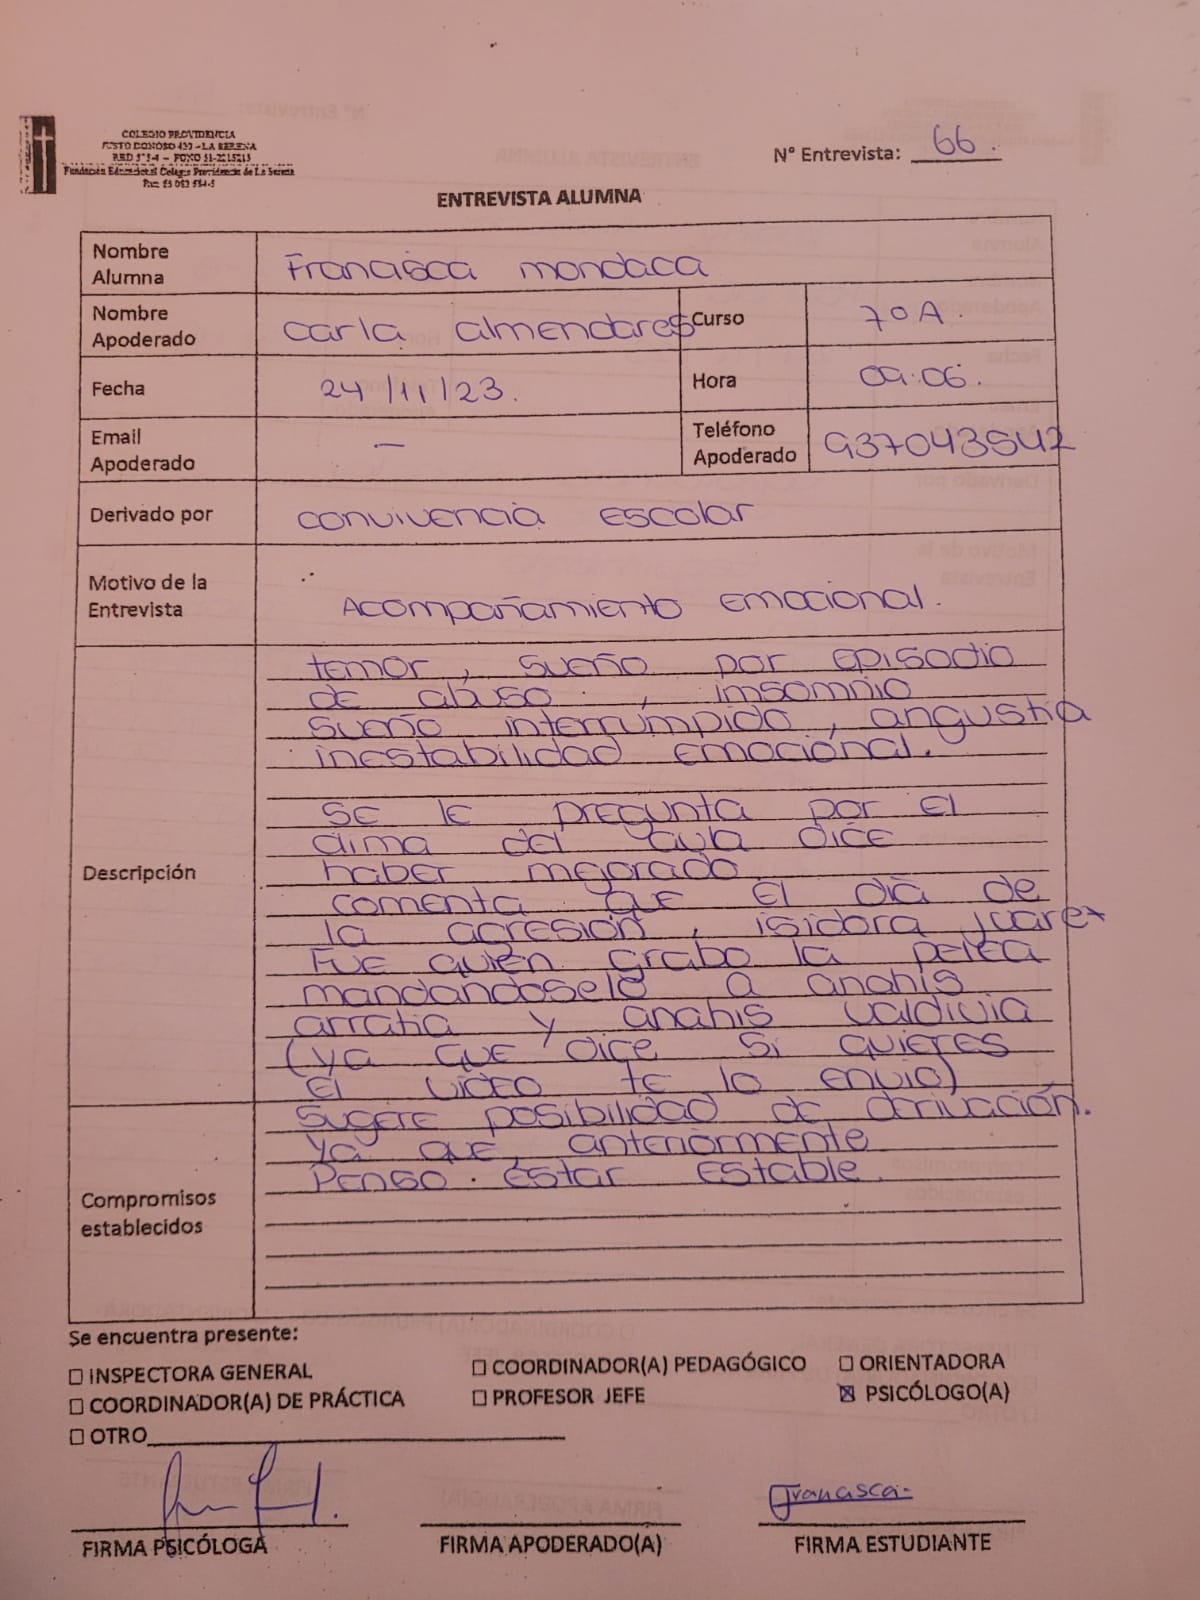 COLEGIO PROVIDENCIA
JUSTO DONOSO 420 – LA SERENA
Fundación Educacional Colegio Providencia de La Serena
N° Entrevista: 66.
ENTREVISTA ALUMNA
Nombre Alumna Francisca mondaca
Nombre Apoderado carla almendares Curso 7ºA.
Fecha 24/11/23. Hora 09:06.
Email Apoderado — Teléfono Apoderado 937043542
Derivado por convivencia escolar
Motivo de la Entrevista Acompañamiento Emocional.
Descripción
temor, sueño por episodio
de abuso, imsomnio
sueño interrumpido, angustia
inestabilidad emociónal.
se le pregunta por el
clima del aula dice
haber mejorado.
comenta que el día de
la acresión, isidora juarez
Fue quien grabo la pelea
mandandoselo a anahis
arratia y anahis valdivia
(ya que dice si quieres
el video te lo envio)
Compromisos establecidos
sugere posibilidad de derivación.
ya que, anteriormente
Penso estar estable.
Se encuentra presente:
☐ INSPECTORA GENERAL ☐ COORDINADOR(A) PEDAGÓGICO ☐ ORIENTADORA
☐ COORDINADOR(A) DE PRÁCTICA ☐ PROFESOR JEFE ☒ PSICÓLOGO(A)
☐ OTRO
Francisca
FIRMA PSICÓLOGA FIRMA APODERADO(A) FIRMA ESTUDIANTE